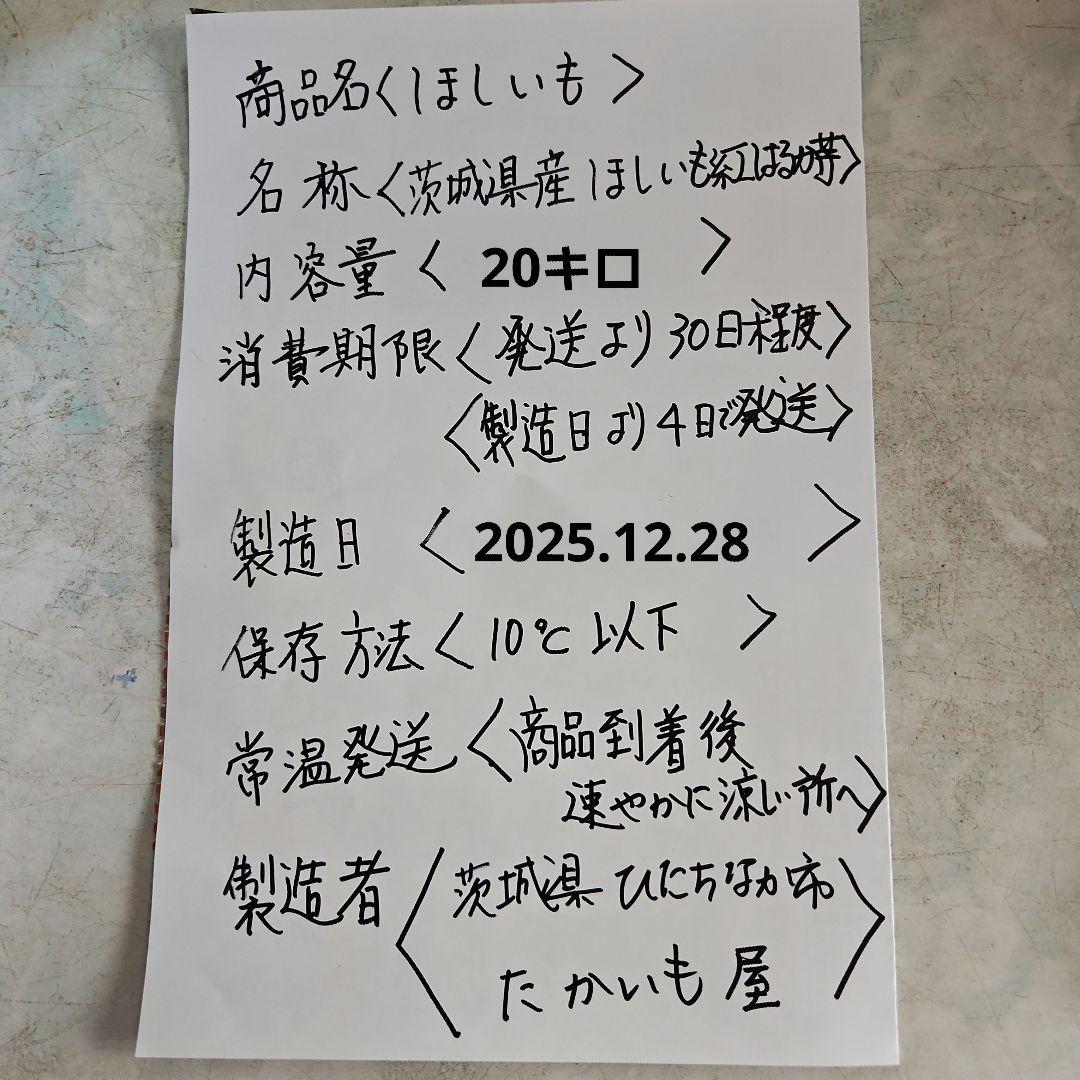 商品名〈ほしいも〉
名称〈茨城県産 ほしいも紅はるか芋〉
内容量〈 20キロ 〉
消費期限〈発送より30日程度〉
〈製造日より4日で発送〉
製造日〈 2025.12.28 〉
保存方法〈10℃以下 〉
常温発送〈商品到着後
速やかに涼しい所へ〉
製造者〈茨城県ひたちなか市
たかいも屋〉